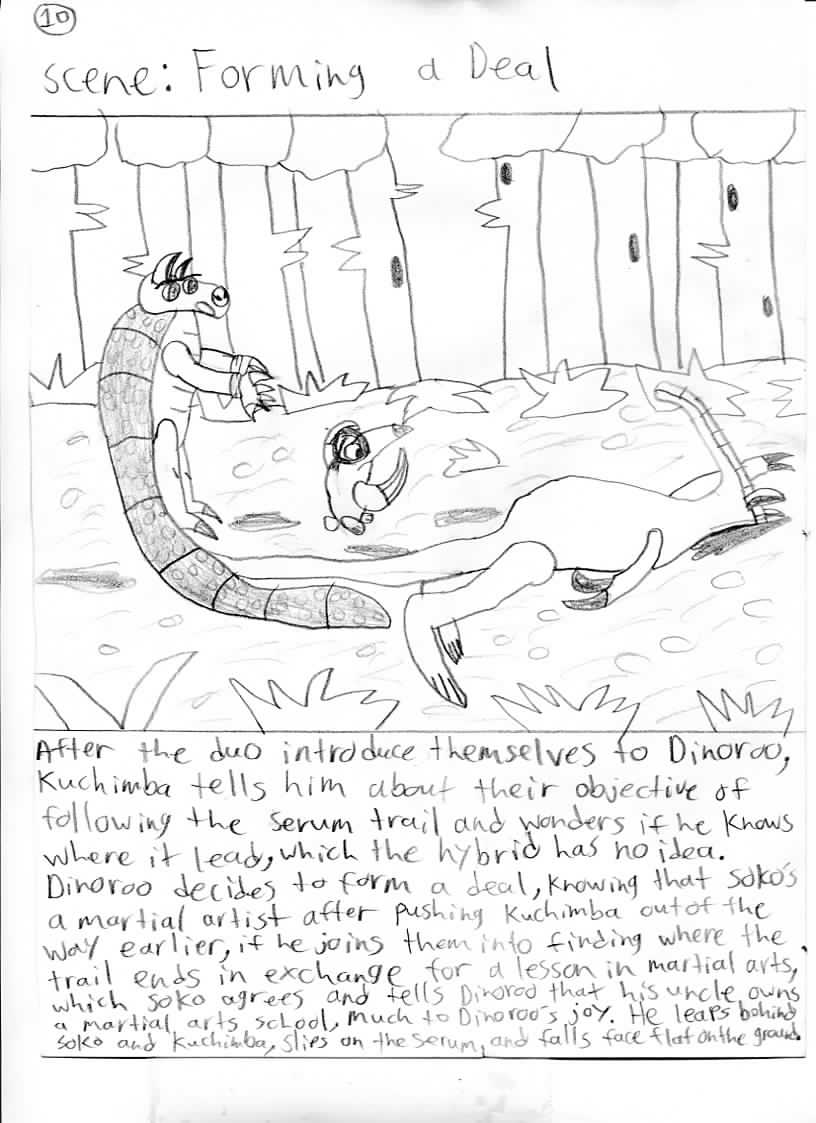 10
scene: Forming a Deal
After the duo introduce themselves to Dinoroo,
Kuchimba tells him about their objective of
following the serum trail and wonders if he knows
where it lead, which the hybrid has no idea.
Dinoroo decides to form a deal, knowing that Soko's
a martial artist after pushing Kuchimba out of the
way earlier, if he joins them into finding where the
trail ends in exchange for a lesson in martial arts,
which Soko agrees and tells Dinoroo that his uncle owns
a martial arts school, much to Dinoroo's joy. He leaps behind
Soko and Kuchimba, slips on the serum, and falls face flat on the ground.